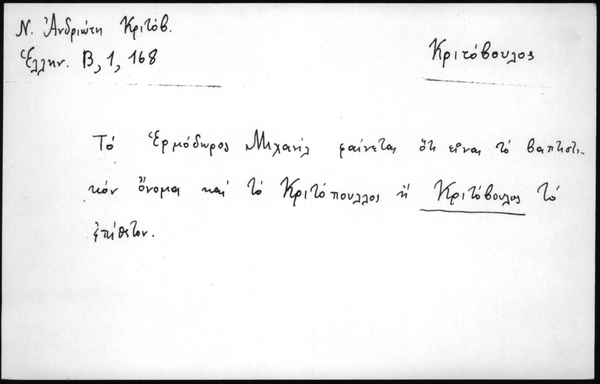 Ν. Ἀνδριώτη Κριτόβ.
Ἑλλην. Β, 1, 168
Κριτόβουλος
Τὸ Ἑρμόδωρος Μιχαὴλ φαίνεται ὅτι εἶναι τὸ βαπτιστι-
κὸν ὄνομα καὶ τὸ Κριτόπουλλος ἢ Κριτόβουλος τὸ
ἐπίθετον.